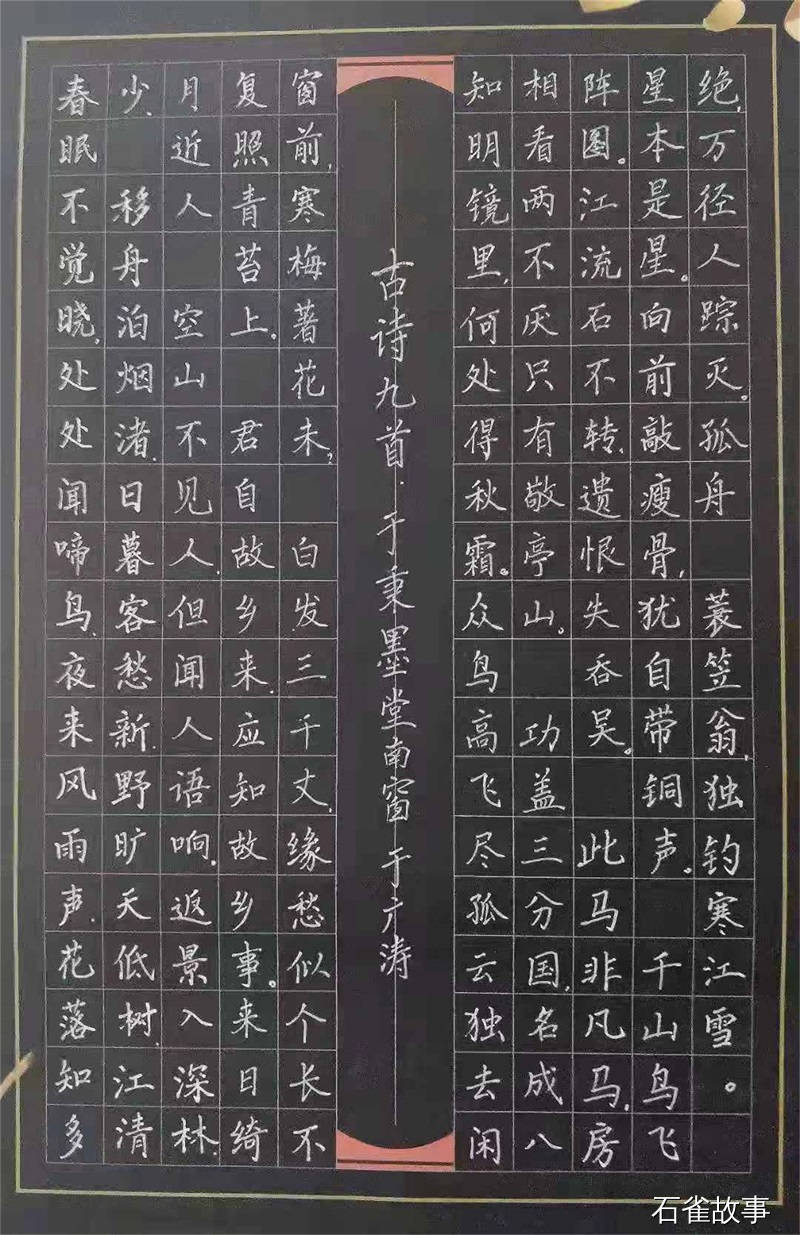 春眠不觉晓,处处闻啼鸟.夜来风雨声.花落知多
少. 移舟泊烟渚.日暮客愁新.野旷天低树.江清
月近人 空山不见人.但闻人语响.返景入深林.
复照青苔上. 君自故乡来.应知故乡事。来日绮
窗前,寒梅著花未? 白发三千丈,缘愁似个长不
古诗九首.于秉墨堂南窗于广涛
知明镜里,何处得秋霜。众鸟高飞尽孤云独去闲
相看两不厌只有敬亭山。 功盖三分国,名成八
阵图。江流石不转,遗恨失吞吴。 此马非凡马,房
星本是星。向前敲瘦骨,犹自带铜声。 千山鸟飞
绝,万径人踪灭。孤舟 蓑笠翁,独钓寒江雪。
石雀故事